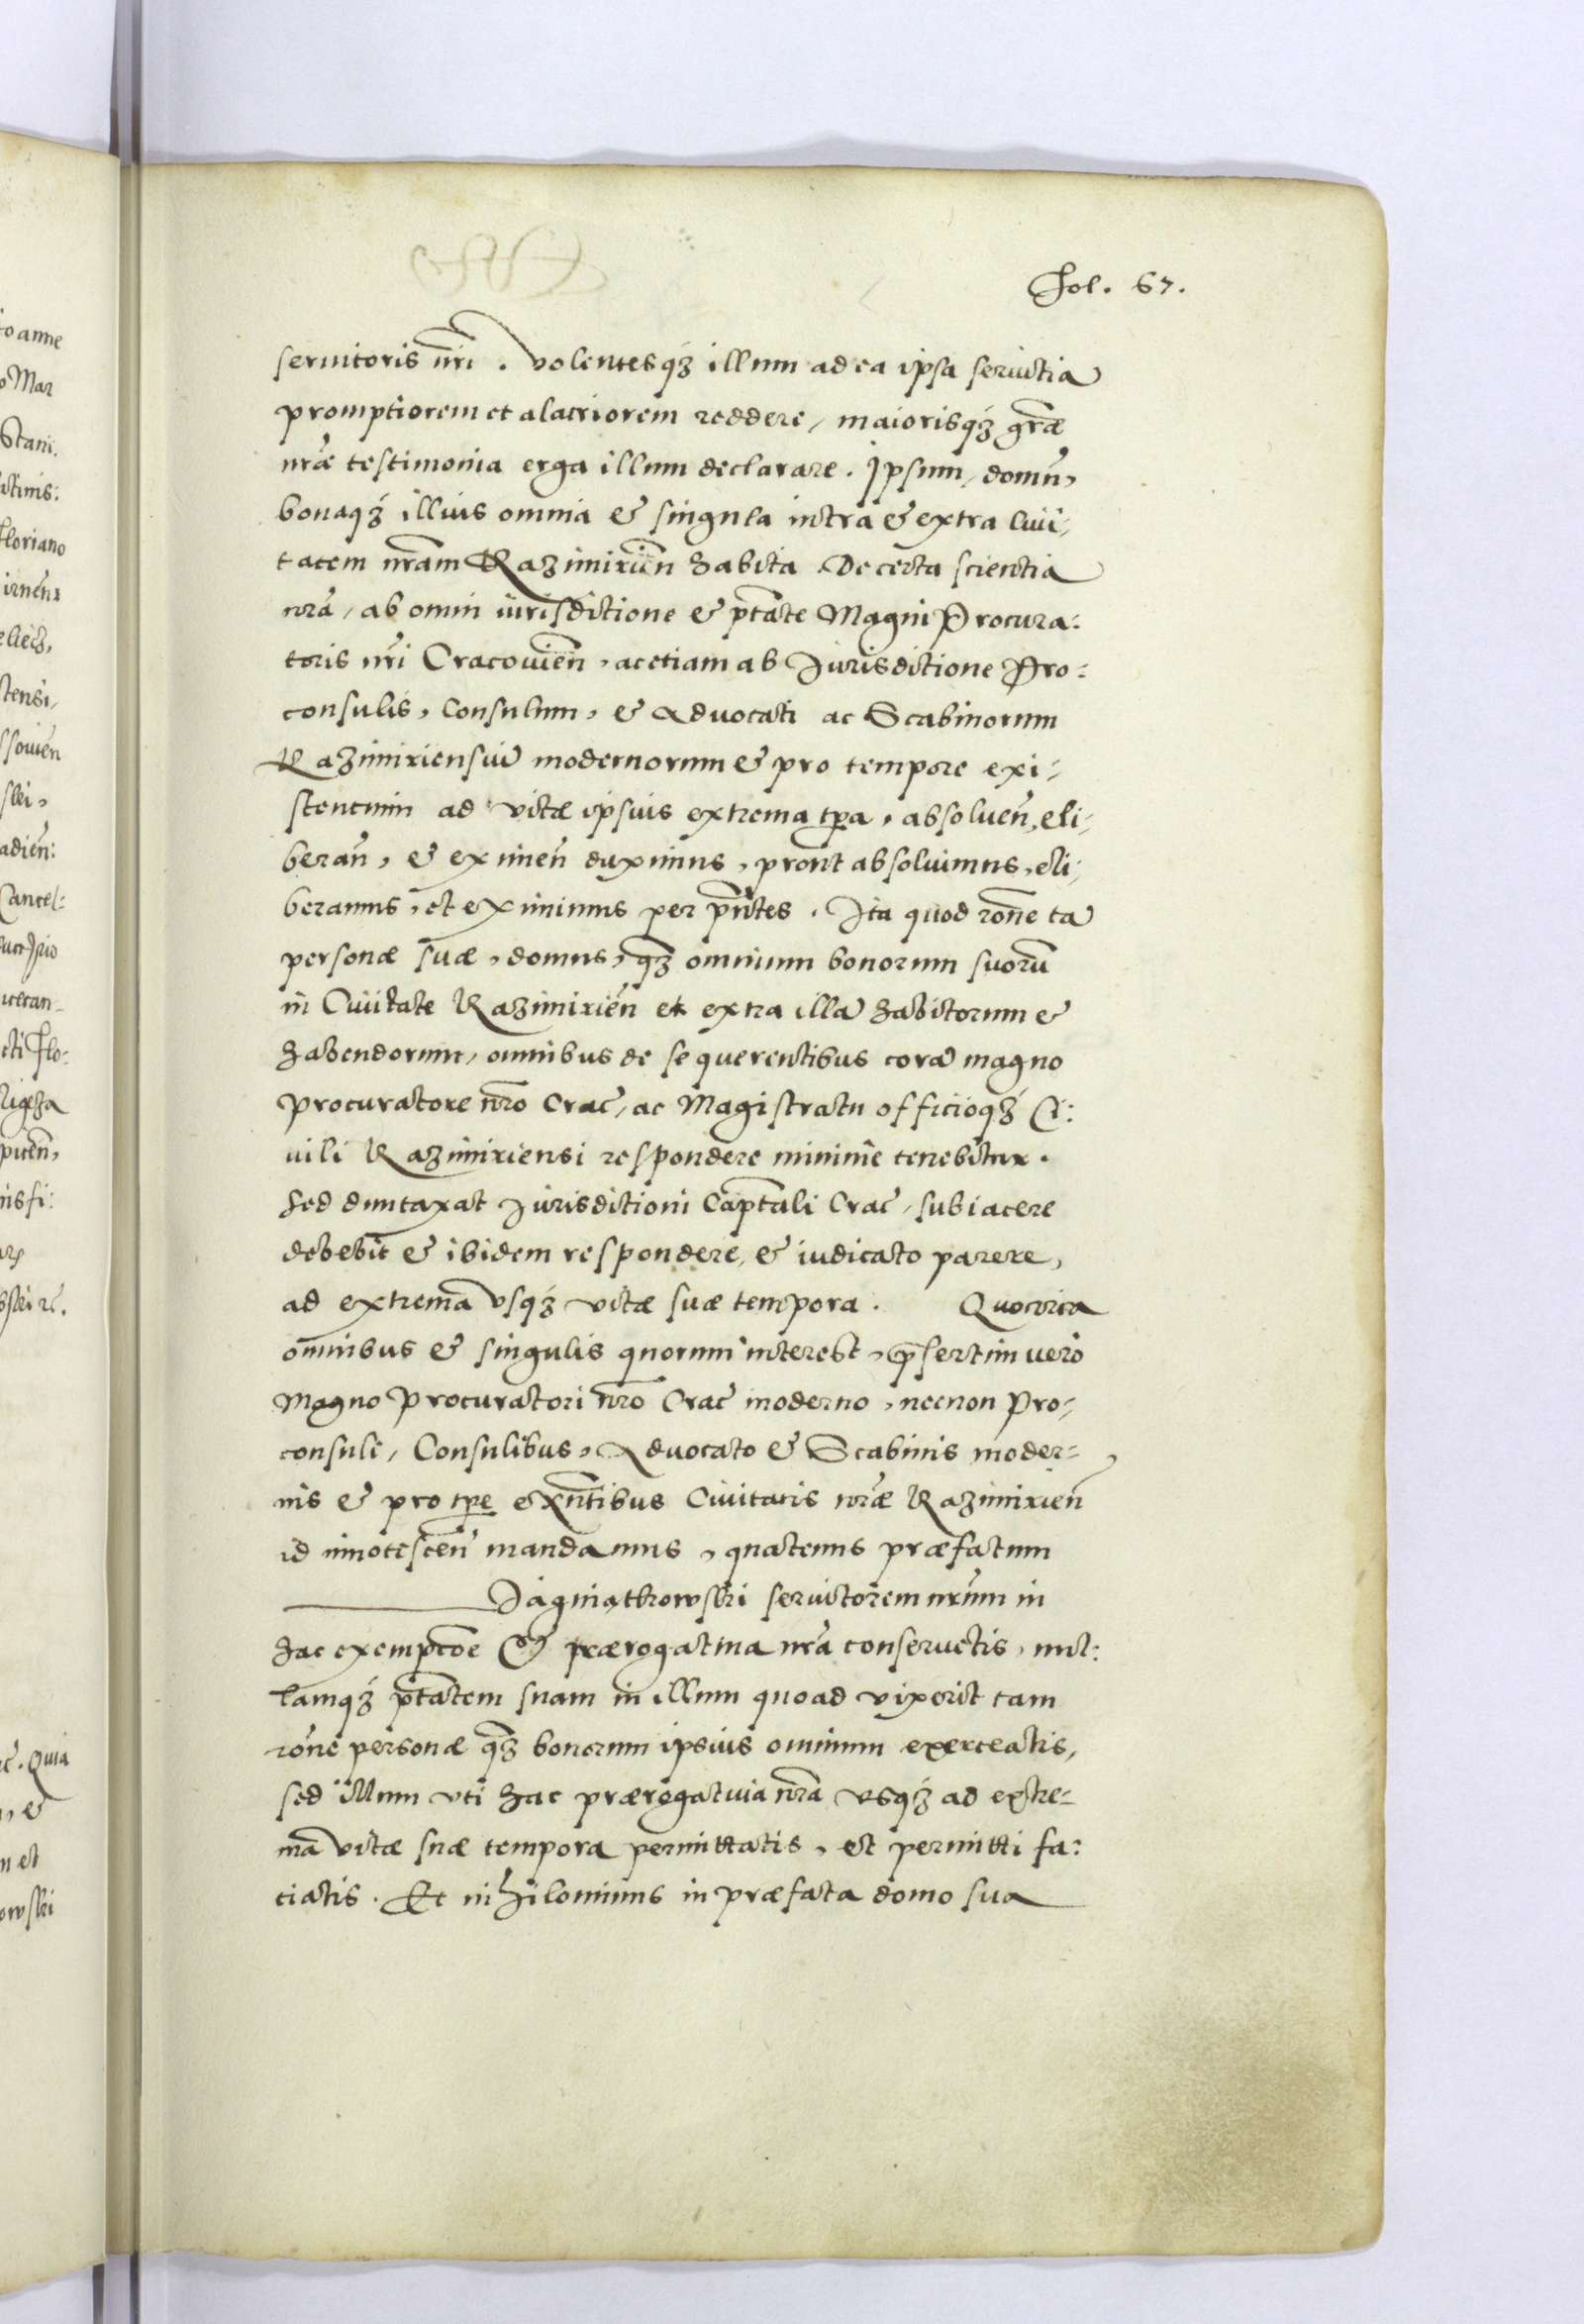 Fol. 67.
seruitoris nr̃i . Volentesq́ȝ illum ad ea ipsa seruitia
promptiorem et alacriorem reddere, maiorisq́ȝ gr̃æ
nr̃æ testimonia erga illum declarare. Ipsum, domũ,
bonaq́ȝ illius omnia & singula intra & extra Ciui-
tatem nr̃am Kazimirieñ habita. De certa scientia
nr̃a, ab omni iurisditione & pt̃ate Magni Procura:
toris nr̃i Cracouieñ, ac etiam ab Jurisditione Pro:
consulis, Consulum, & Aduocati ac Scabinorum
Kazimiriensiũ modernorum & pro tempore exi-
stentium ad vitæ ipsius extrema tp̃ra, absolueñ, eli-
berañ, & eximeñ duximus, prout absoluimus, eli-
beramus, et eximimus per pñtes. Ita quod rõne tã
personæ suæ, domus, q̃ȝ omnium bonorum suorũ
in Ciuitate Kazimirieñ et extra illã habitorum &
habendorum, omnibus de se querentibus corã magno
procuratore nr̃o Crac̃, ac Magistratu officioq́ȝ Ci:
uili Kazimiriensi respondere minime tenebitur.
Sed duntaxat Jurisditioni Capt̃ali Crac̃, subiacere
debebit & ibidem respondere, & iudicato parere,
ad extrema vsq́ȝ vitæ suæ tempora. Quocirca
omnibus & singulis quorum interest, p̃sertim uero
Magno Procuratori nr̃o Crac̃ moderno, necnon Pro-
consuli, Consulibus, Aduocato & Scabinis moder-
nis & pro tp̃re exñtibus Ciuitatis nr̃æ Kazimirieñ
id innotesceñ mandamus, quatenus præfatum
Jagniątkowski seruitorem nr̃um in
hac exempt̃oe & prærogatiua nr̃a conseruetis, nul:
lamq́ȝ pt̃atem suam in illum quoad vixerit tam
rõne personæ q̃ȝ bonorum ipsius omnium exerceatis,
sed illum vti hac prærogatiua nr̃a vsq́ȝ ad extre-
ma vitæ suæ tempora permittatis, et permitti fa:
ciatis. Et nihilominus in præfata domo sua